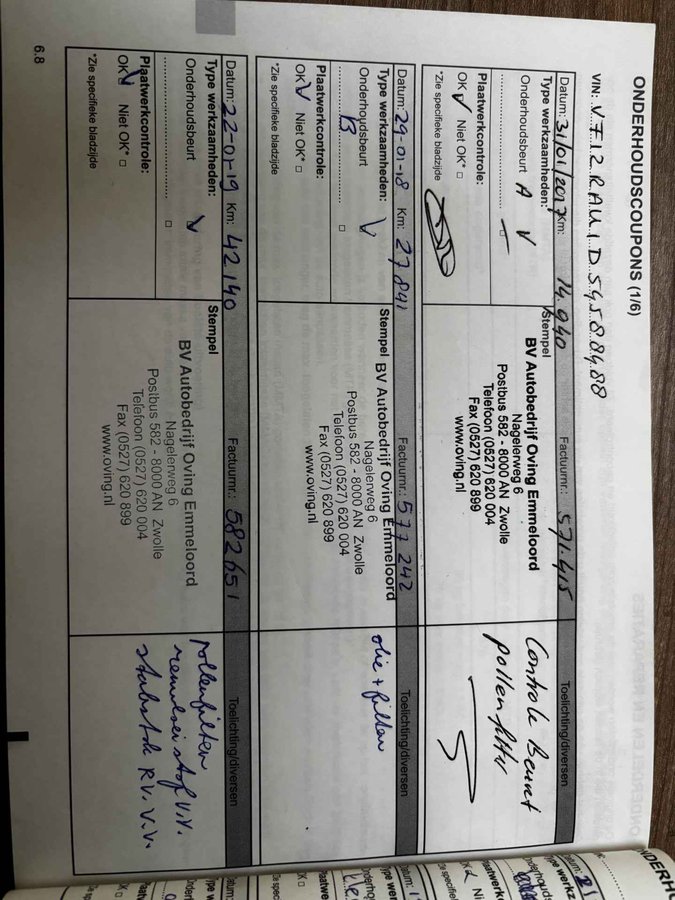 ONDERHOUDSCOUPONS (1/6)
VIN: V.F.1.2.R.A.U.1.D.5.4.5.8.8.4.8.8
Datum: 31/01/2017 Km: 14.940 Factuurnr.: 571.415 Toelichting/diversen
Type werkzaamheden:
Onderhoudsbeurt A V
Plaatwerkcontrole:
OK V Niet OK* □
*Zie specifieke bladzijde
Stempel
BV Autobedrijf Oving Emmeloord
Nagelerweg 6
Postbus 582 - 8000 AN Zwolle
Telefoon (0527) 620 004
Fax (0527) 620 899
www.oving.nl
Controle Beurt
pollenfilter
Datum: 29-01-18 Km: 27841 Factuurnr.: 577242 Toelichting/diversen
Type werkzaamheden:
Onderhoudsbeurt V
B □
Plaatwerkcontrole:
OK V Niet OK* □
*Zie specifieke bladzijde
Stempel
BV Autobedrijf Oving Emmeloord
Nagelerweg 6
Postbus 582 - 8000 AN Zwolle
Telefoon (0527) 620 004
Fax (0527) 620 899
www.oving.nl
olie + filter
Datum: 22-01-19 Km: 42140 Factuurnr.: 582651 Toelichting/diversen
Type werkzaamheden:
Onderhoudsbeurt V
□
Plaatwerkcontrole:
OK V Niet OK* □
*Zie specifieke bladzijde
Stempel
BV Autobedrijf Oving Emmeloord
Nagelerweg 6
Postbus 582 - 8000 AN Zwolle
Telefoon (0527) 620 004
Fax (0527) 620 899
www.oving.nl
pollenfilter
remvloeistof V.V.
R.V. V.V.
6.8